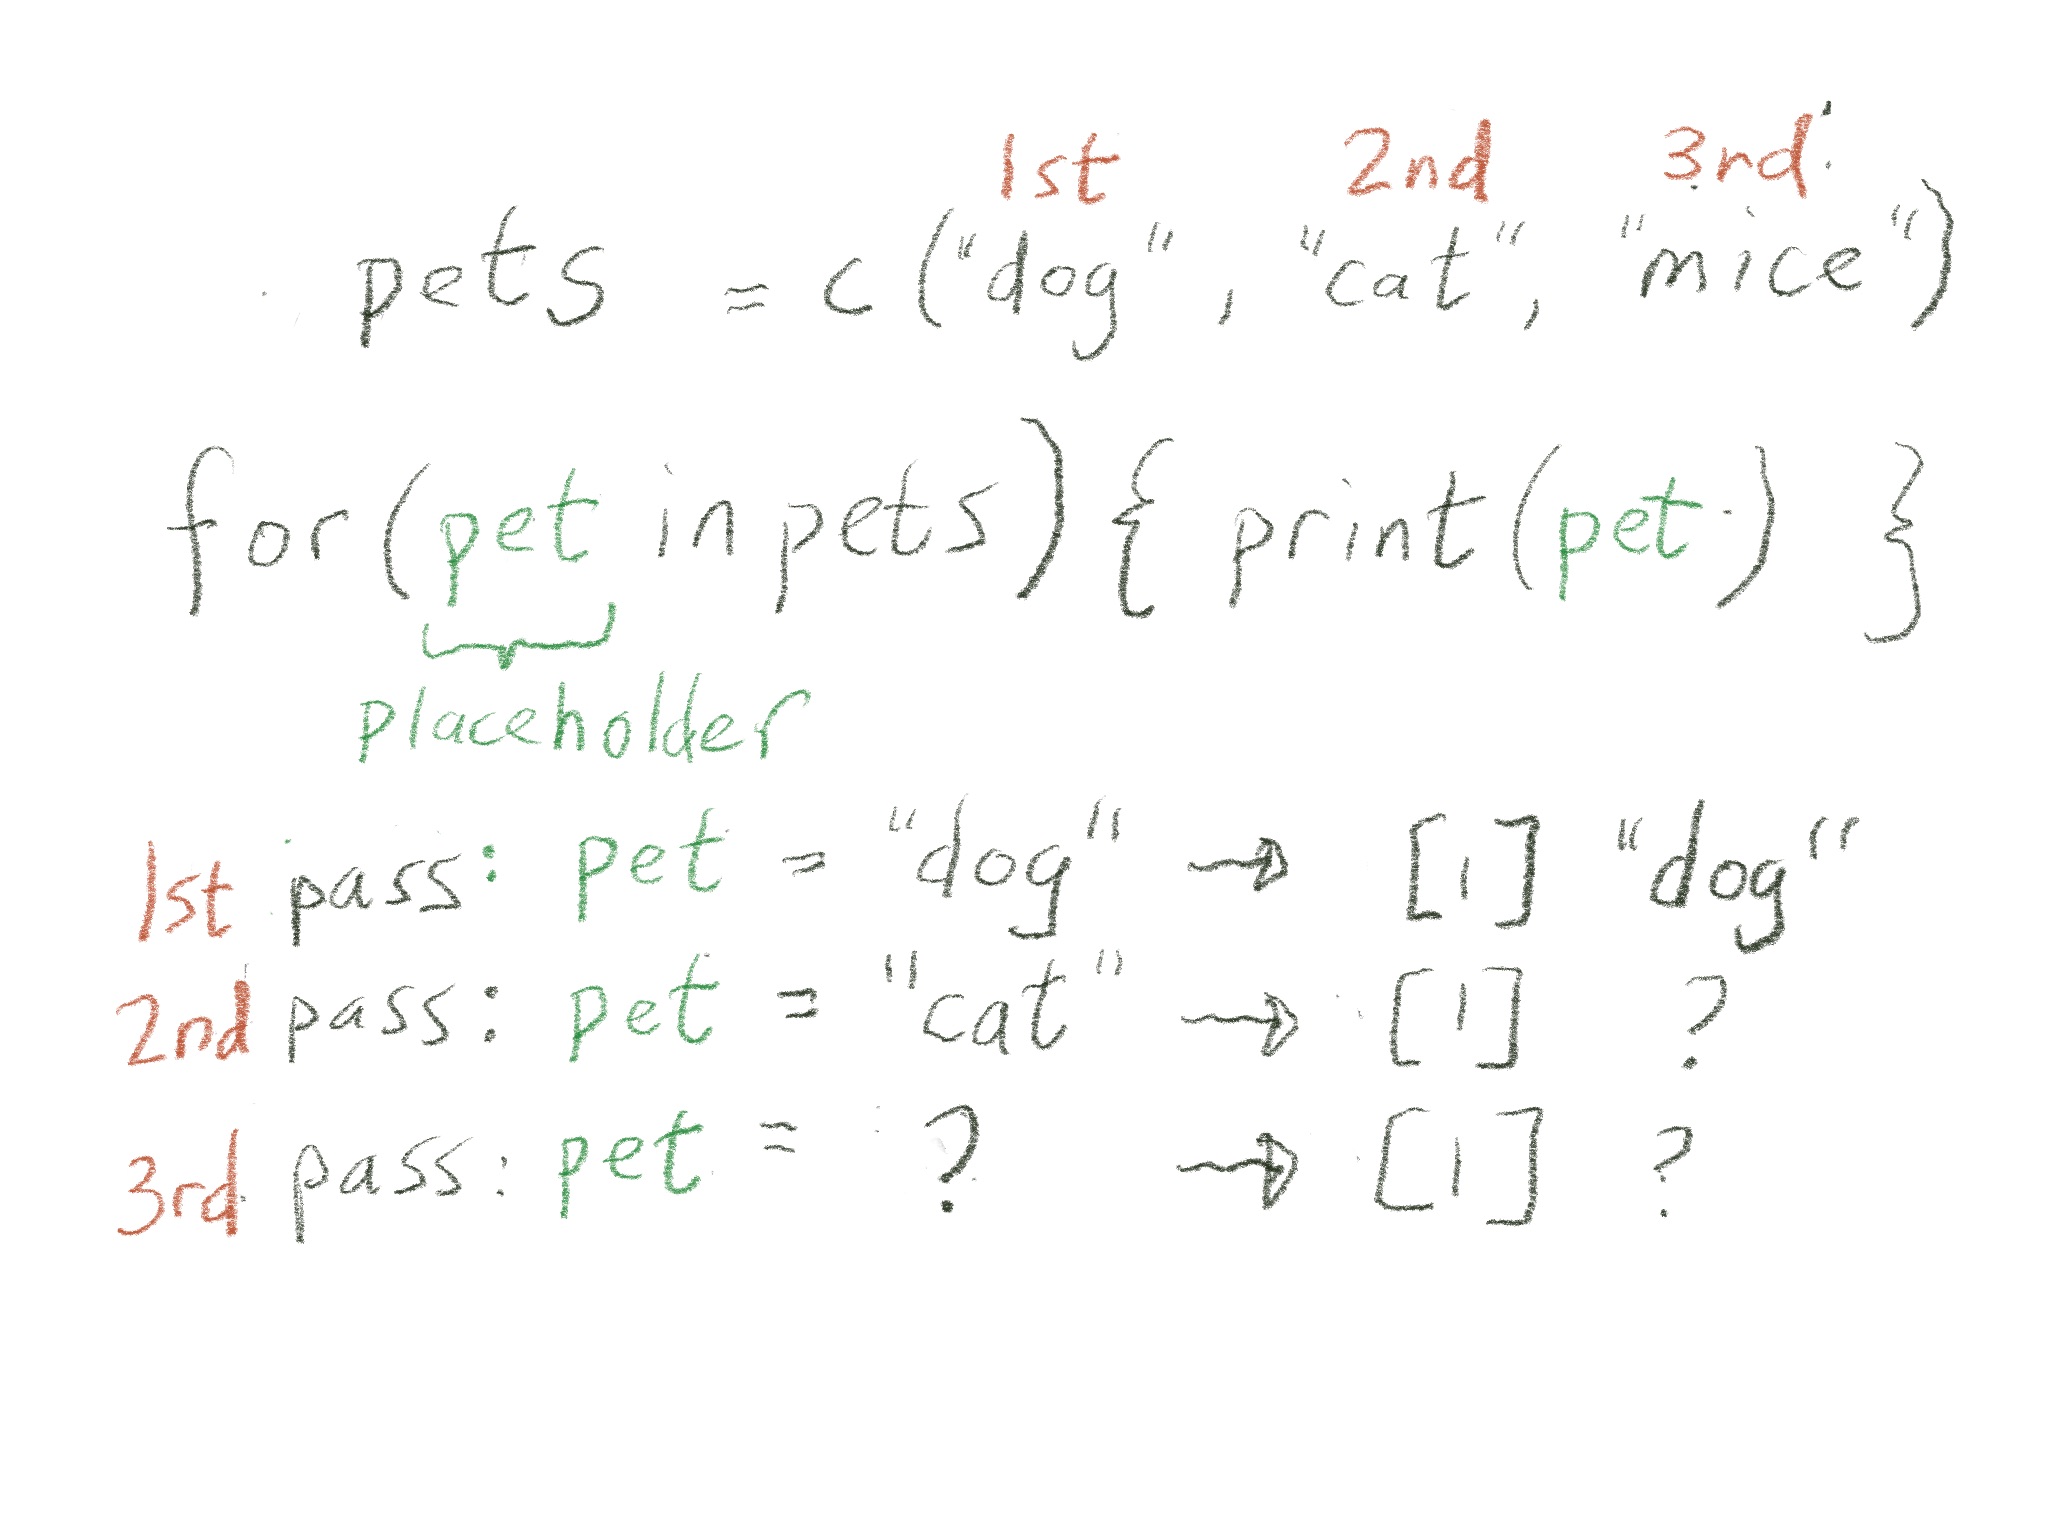 1st 2nd 3rd
pets = c("dog", "cat", "mice")
for(pet in pets){ print(pet) }
placeholder
1st pass: pet = "dog" → [1] "dog"
2nd pass: pet = "cat" → [1] ?
3rd pass: pet = ? → [1] ?